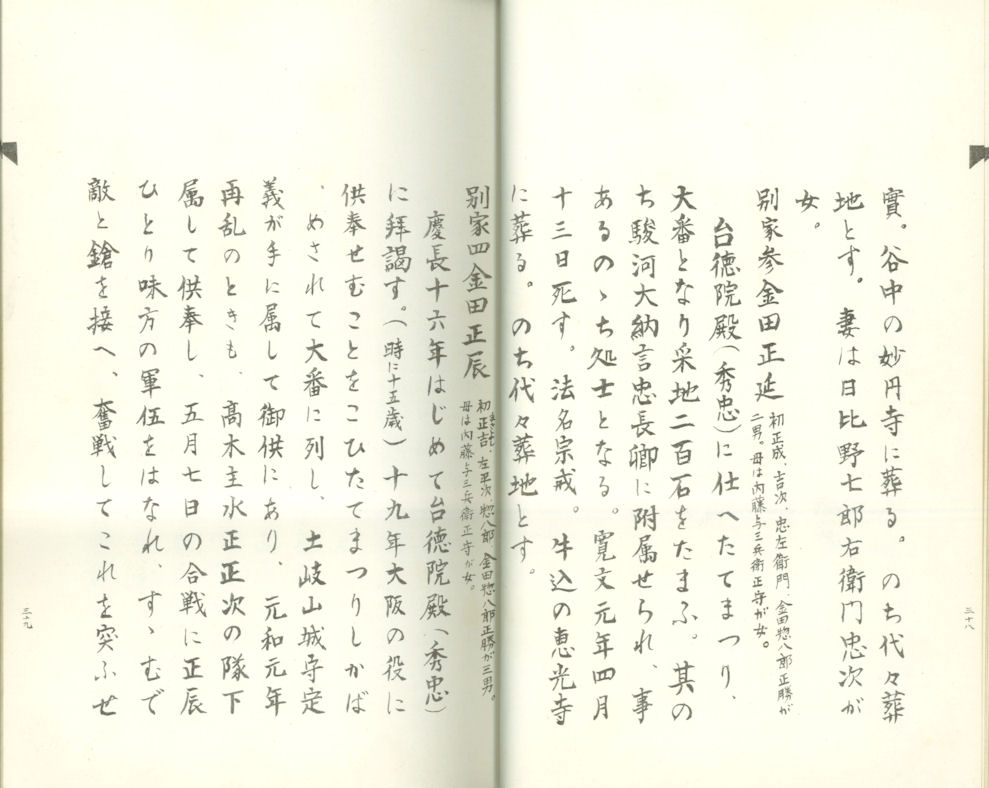 實。谷中の妙円寺に葬る。のち代々葬
地とす。妻は日比野七郎右衛門忠次が
女。
別家参金田正延
初正成、吉次、忠左衛門、金田惣八郎正勝が
二男。母は内藤与三兵衛正守が女。
台徳院殿(秀忠)に仕へたてまつり、
大番となり采地二百石をたまふ。其の
ち駿河大納言忠長卿に附属せられ、事
あるのゝち処士となる。寛文元年四月
十三日死す。法名宗戒。牛込の恵光寺
に葬る。のち代々葬地とす。
三十八
別家四金田正辰
初正吉、左平次、惣八郎、金田惣八郎正勝が三男。
母は内藤与三兵衛正守が女。
慶長十六年はじめて台徳院殿(秀忠)
に拝謁す。(時に十五歳)十九年大阪の役に
供奉せむことをこひたてまつりしかば
、めされて大番に列し、土岐山城守定
義が手に属して御供にあり、元和元年
再乱のときも、髙木主水正正次の隊下
属して供奉し、五月七日の合戦に正辰
ひとり味方の軍伍をはなれ、すゝむで
敵と鎗を接へ、奮戦してこれを突ふせ
三十九